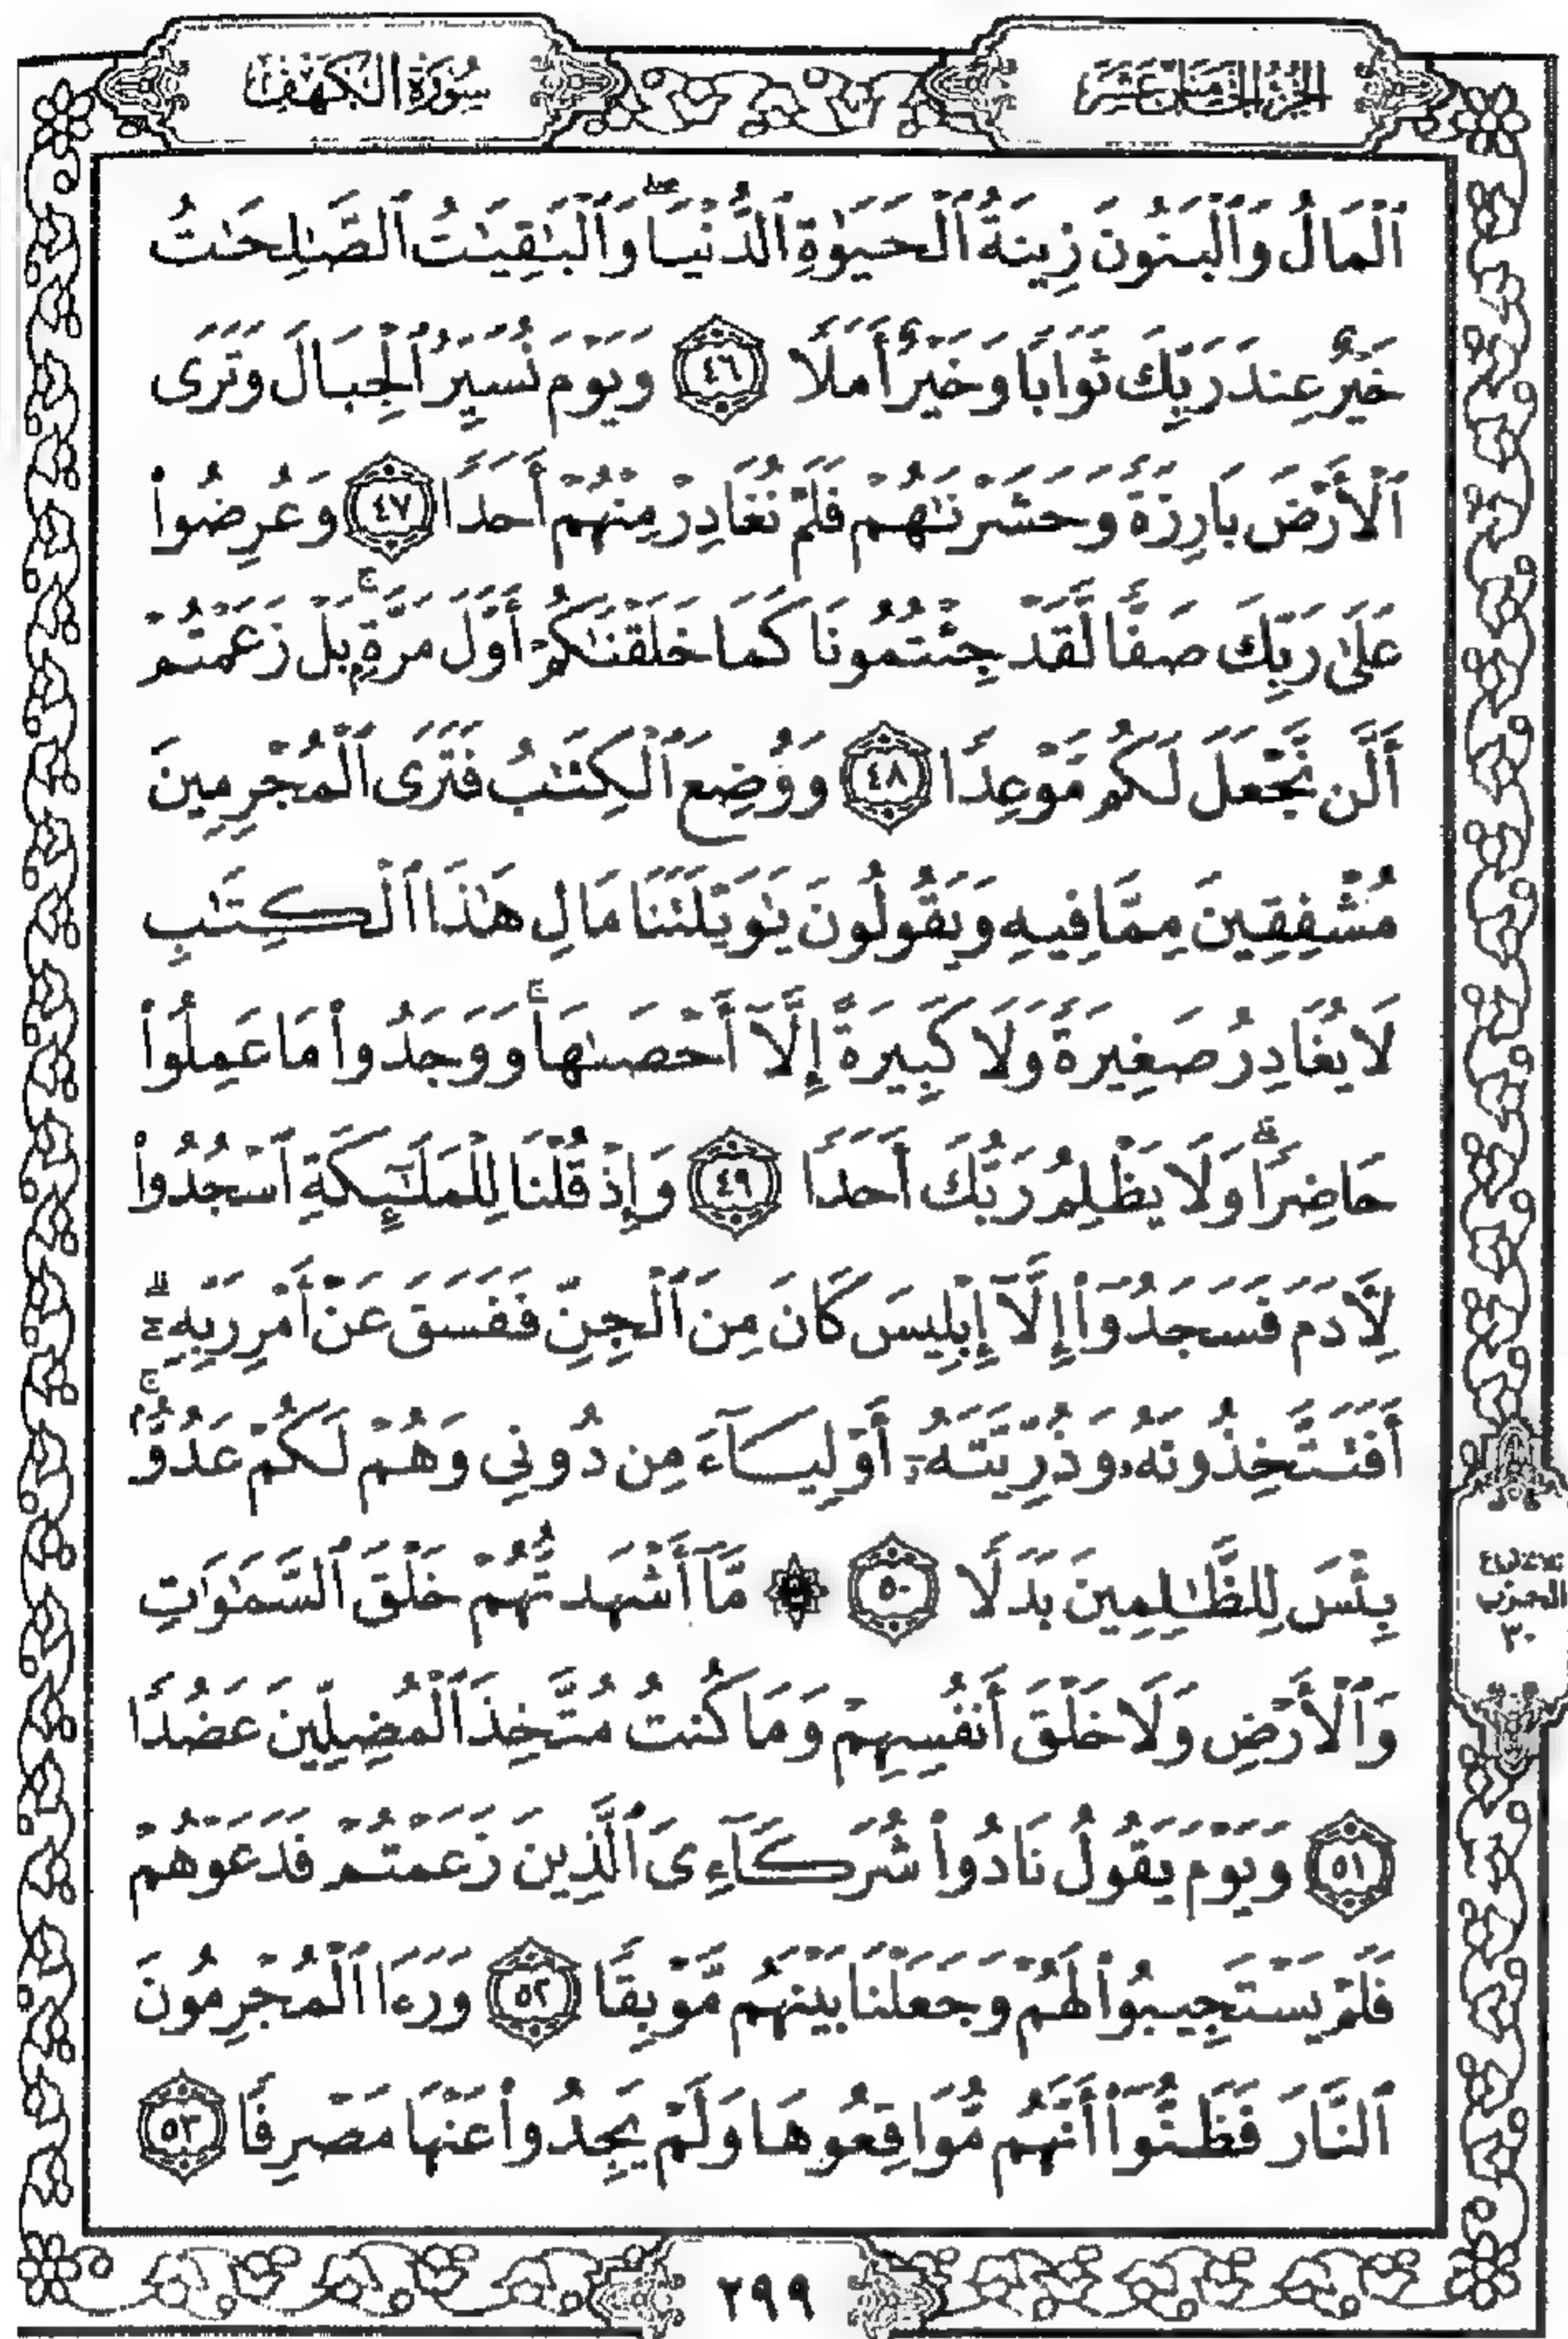 الجزء الخامس عشر
سورة الكهف
ٱلْمَالُ وَٱلْبَنُونَ زِينَةُ ٱلْحَيَوٰةِ ٱلدُّنْيَا ۖ وَٱلْبَـٰقِيَـٰتُ ٱلصَّـٰلِحَـٰتُ
خَيْرٌ عِندَ رَبِّكَ ثَوَابًا وَخَيْرٌ أَمَلًا ٤٦ وَيَوْمَ نُسَيِّرُ ٱلْجِبَالَ وَتَرَى
ٱلْأَرْضَ بَارِزَةً وَحَشَرْنَـٰهُمْ فَلَمْ نُغَادِرْ مِنْهُمْ أَحَدًا ٤٧ وَعُرِضُوا۟
عَلَىٰ رَبِّكَ صَفًّا لَّقَدْ جِئْتُمُونَا كَمَا خَلَقْنَـٰكُمْ أَوَّلَ مَرَّةٍۭ ۚ بَلْ زَعَمْتُمْ
أَلَّن نَّجْعَلَ لَكُم مَّوْعِدًا ٤٨ وَوُضِعَ ٱلْكِتَـٰبُ فَتَرَى ٱلْمُجْرِمِينَ
مُشْفِقِينَ مِمَّا فِيهِ وَيَقُولُونَ يَـٰوَيْلَتَنَا مَالِ هَـٰذَا ٱلْكِتَـٰبِ
لَا يُغَادِرُ صَغِيرَةً وَلَا كَبِيرَةً إِلَّآ أَحْصَىٰهَا ۚ وَوَجَدُوا۟ مَا عَمِلُوا۟
حَاضِرًا ۗ وَلَا يَظْلِمُ رَبُّكَ أَحَدًا ٤٩ وَإِذْ قُلْنَا لِلْمَلَـٰٓئِكَةِ ٱسْجُدُوا۟
لِـَٔادَمَ فَسَجَدُوٓا۟ إِلَّآ إِبْلِيسَ كَانَ مِنَ ٱلْجِنِّ فَفَسَقَ عَنْ أَمْرِ رَبِّهِۦٓ ۗ
أَفَتَتَّخِذُونَهُۥ وَذُرِّيَّتَهُۥٓ أَوْلِيَآءَ مِن دُونِى وَهُمْ لَكُمْ عَدُوٌّۢ ۚ
بِئْسَ لِلظَّـٰلِمِينَ بَدَلًا ٥٠ ۞ مَّآ أَشْهَدتُّهُمْ خَلْقَ ٱلسَّمَـٰوَٰتِ
وَٱلْأَرْضِ وَلَا خَلْقَ أَنفُسِهِمْ وَمَا كُنتُ مُتَّخِذَ ٱلْمُضِلِّينَ عَضُدًا
٥١ وَيَوْمَ يَقُولُ نَادُوا۟ شُرَكَآءِىَ ٱلَّذِينَ زَعَمْتُمْ فَدَعَوْهُمْ
فَلَمْ يَسْتَجِيبُوا۟ لَهُمْ وَجَعَلْنَا بَيْنَهُم مَّوْبِقًا ٥٢ وَرَءَا ٱلْمُجْرِمُونَ
ٱلنَّارَ فَظَنُّوٓا۟ أَنَّهُم مُّوَاقِعُوهَا وَلَمْ يَجِدُوا۟ عَنْهَا مَصْرِفًا ٥٣
ثلاثة أرباع
الحزب
٣٠
٢٩٩